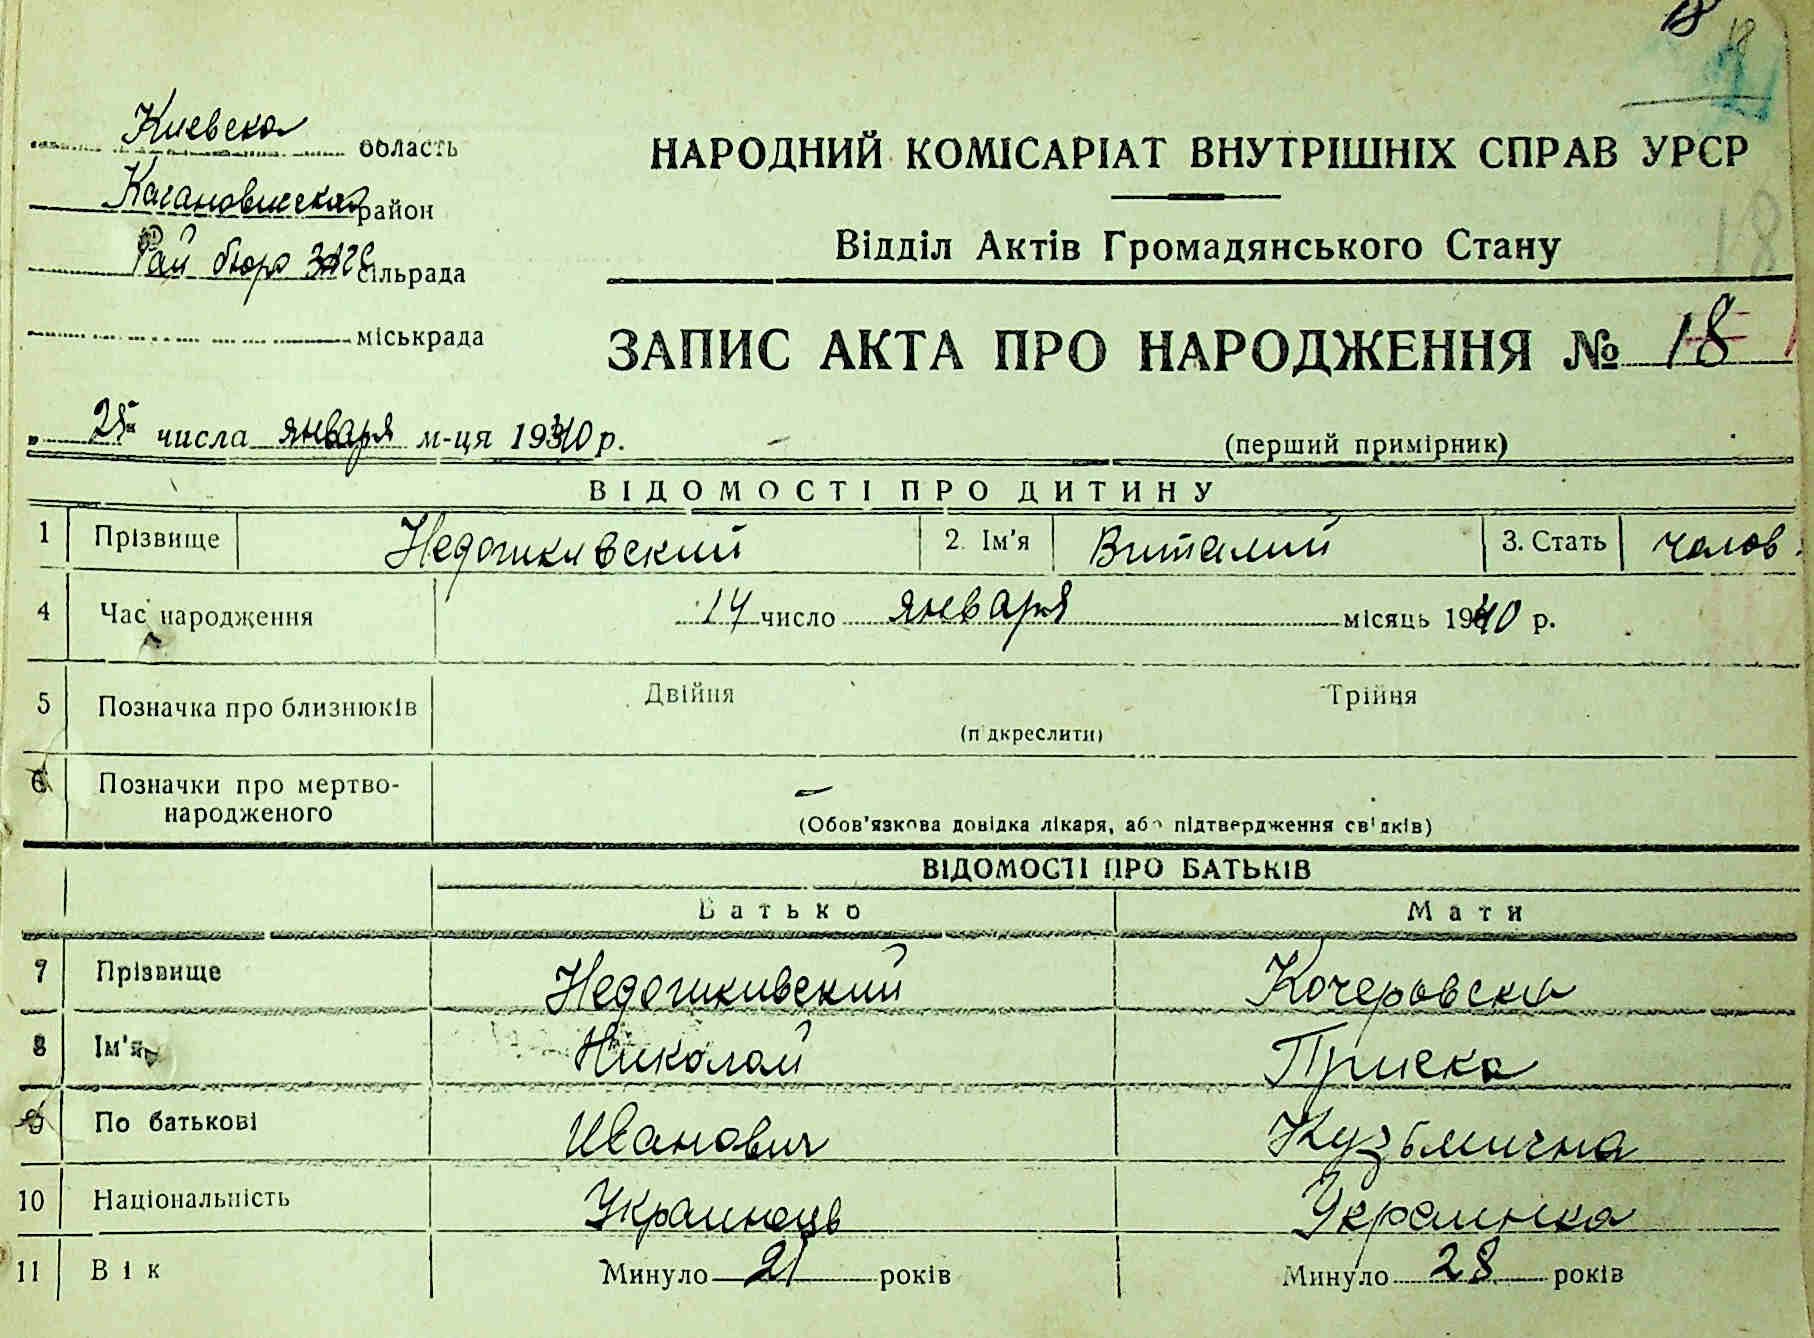 18 18
Киевска область
Кагановическая район
Рай бюро ЗАГС сільрада
міськрада
НАРОДНИЙ КОМІСАРІАТ ВНУТРІШНІХ СПРАВ УРСР
Відділ Актів Громадянського Стану
18
ЗАПИС АКТА ПРО НАРОДЖЕННЯ № 18
" 25 числа января м-ця 1940 р.
(перший примірник)
ВІДОМОСТІ ПРО ДИТИНУ
1 Прізвище 2. Ім'я Виталий 3. Стать чолов.
4 Час народження 14 число января місяць 1940 р.
5 Позначка про близнюків Двійня Трійня
(підкреслити)
6 Позначки про мертво-
народженого —
(Обов'язкова довідка лікаря, або підтвердження свідків)
ВІДОМОСТІ ПРО БАТЬКІВ
Батько Мати
7 Прізвище Кочеровска
8 Ім'я Николай Приска
9 По батькові Иванович Кузьмична
10 Національність Украинець Украинка
11 Вік Минуло 21 років Минуло 28 років